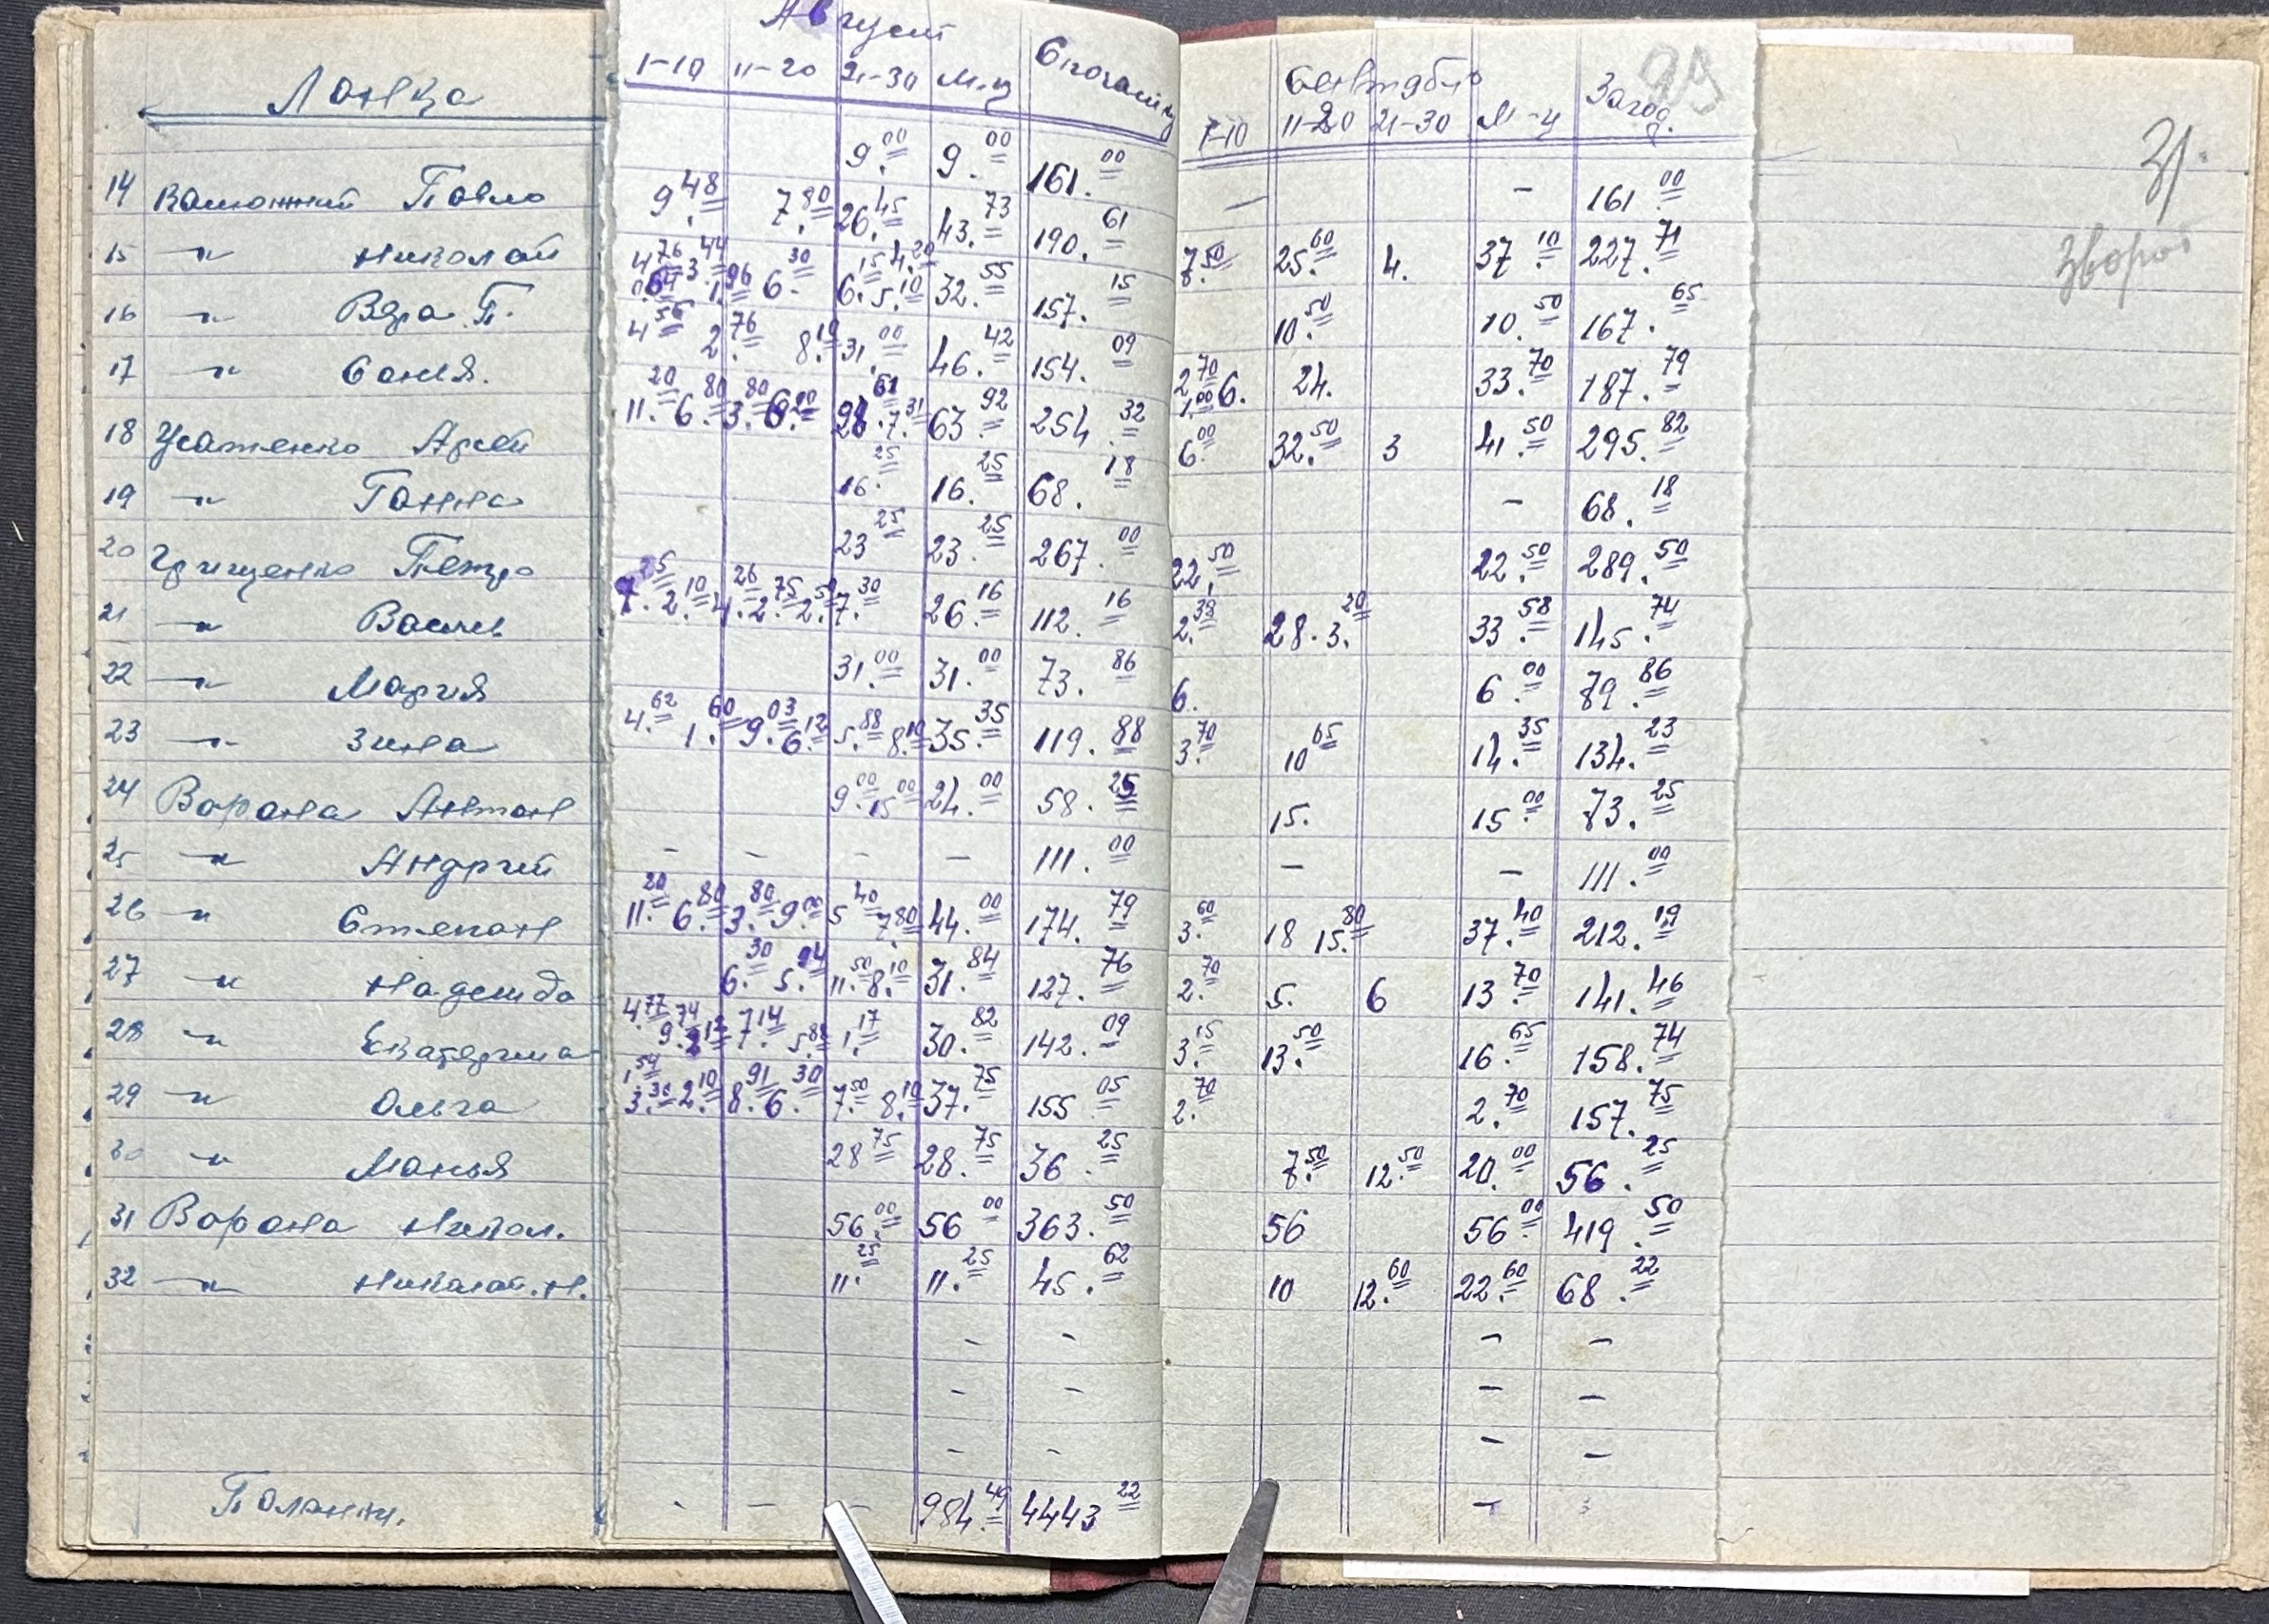 Ланка
Август
Спочатку
1-10 11-20 21-30 М-ц
Сентябрь
Загод.
1-10 11-20 21-30 М-ц
99
31.
зворот
14 Павло 9.00 9.00 161.00 — - 161.00
15 —"— Николай 9.48 7.80 26.45 43.73 190.61 7.50 25.60 4. 37.10 227.71
16 —"— Вера П. 4.76 3.44 1.96 6.30 6.15 4.20 5.10 32.55 157.15 10.50 10.50 167.65
17 —"— Соня. 4.56 2.76 8.10 31.00 46.42 154.09 2.70 1.00 6. 24. 33.70 187.79
18 Усатенко 11.20 6.80 3.80 7.31 63.92 254.32 6.00 32.50 3 41.50 295.82
19 —"— Ганна 16.25 16.25 68.18 - 68.18
20 Грищенко Петро 23.25 23.25 267.00 22.50 22.50 289.50
21 —"— 7.25 2.10 4.26 2.75 2.50 7.30 26.16 112.16 2.38 28. 3.20 33.58 145.74
22 —"— Мария 31.00 31.00 73.86 6. 6.00 79.86
23 —"— Зина 4.62 1.60 9.03 6.12 5.88 8.10 35.35 119.88 3.70 10.65 14.35 134.23
24 Ворона Антон 9.00 15.00 24.00 58.25 15. 15.00 73.25
25 —"— Андрій - - - - 111.00 - - 111.00
26 —"— Степан 11.20 6.80 3.80 9.00 5.40 7.80 44.00 174.79 3.60 18 15.80 37.40 212.19
27 —"— Надежда 6.30 5.94 11.50 8.10 31.84 127.76 2.70 5. 6 13.70 141.46
28 —"— Екатерина 4.77 9.74 2.12 7.14 5.88 1.17 30.82 142.09 3.15 13.50 16.65 158.74
29 —"— Ольга 1.54 3.30 2.10 8.91 6.30 7.50 8.10 37.75 155.05 2.70 2.70 157.75
30 —"— Манья 28.75 28.75 36.25 7.50 12.50 20.00 56.25
31 Ворона Никол. 56.00 56.00 363.50 56 56.00 419.50
32 —"— Николай. Н. 11.25 11.25 45.62 10 12.60 22.60 68.22
- - - -
- - - -
- - - -
- - - 984.49 4443.22 -